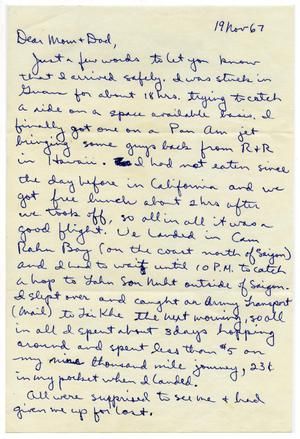 19 Nov 67
Dear Mom & Dad,
Just a few words to let you know
that I arrived safely. I was stuck in
Guam for about 18 hrs. trying to catch
a ride on a space available basis. I
finally got one on a Pan Am jet
bringing some guys back from R+R
in Hawaii. I had not eaten since
the day before in California and we
got free lunch about 2 hrs after
we took off, so all in all it was a
good flight. We landed in Cam
Rahn Bay (on the coast north of Saigon)
and I had to wait until 10 P.M. to catch
a hop to Tahn Son Nuht outside of Saigon.
I slept over and caught an Army Transport
(Mail) to Lai Khe the next morning, so all
in all I spent about 3 days hopping
around and spent less than $5 on
my nine thousand mile journey, 23¢
in my pocket when I landed.
All were surprised to see me & had
given me up for lost.